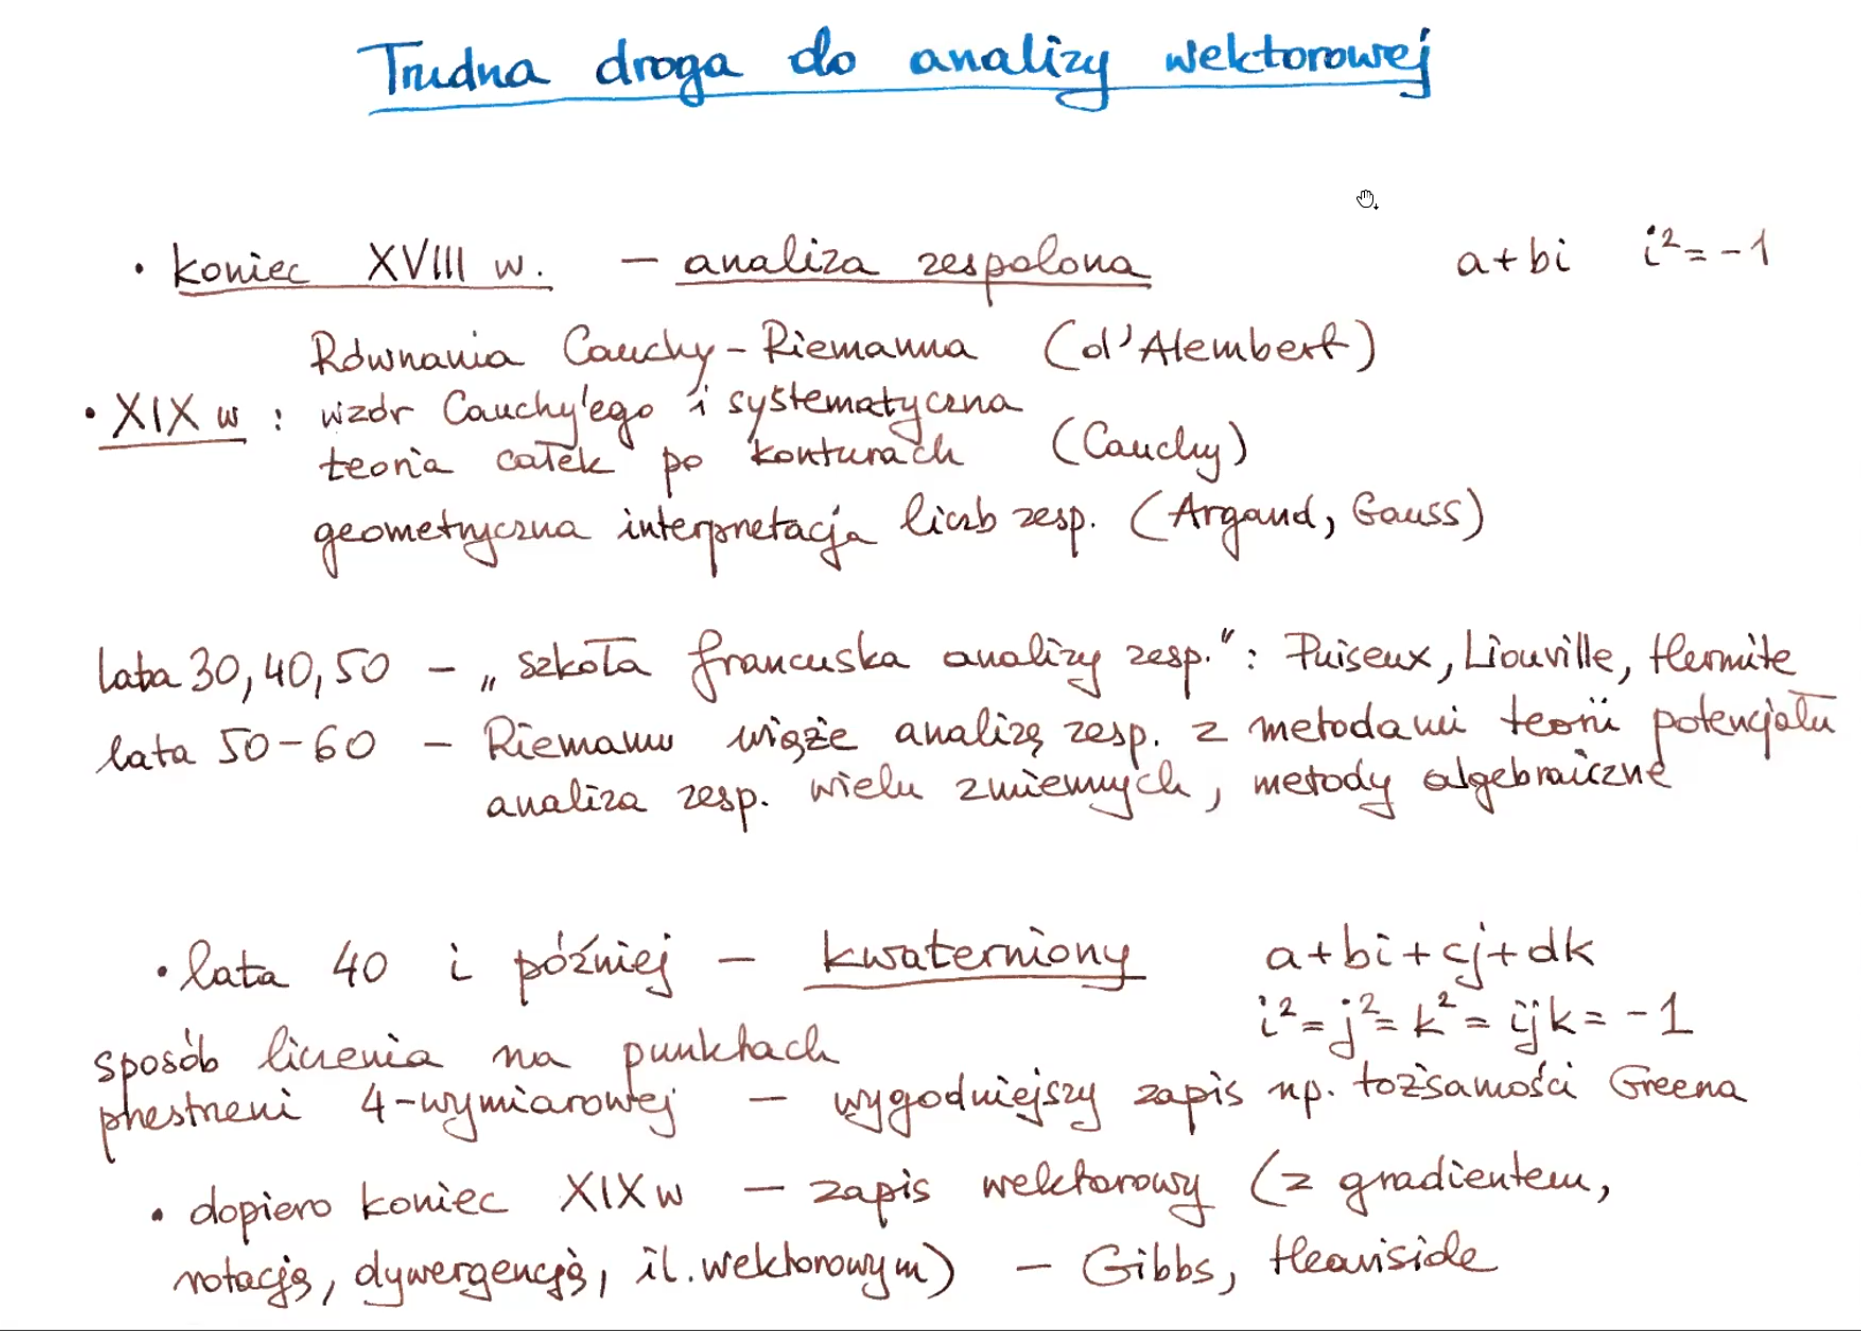 Trudna droga do analizy wektorowej
• koniec XVIII w. – analiza zespolona a+bi i²=-1
Równania Cauchy-Riemanna (d'Alembert)
• XIX w : wzór Cauchy'ego i systematyczna
teoria całek po konturach (Cauchy)
geometryczna interpretacja liczb zesp. (Argand, Gauss)
lata 30, 40, 50 – „szkoła francuska analizy zesp.": Puiseux, Liouville, Hermite
lata 50-60 – Riemann wiąże analizę zesp. z metodami teorii potencjału
analiza zesp. wielu zmiennych, metody algebraiczne
• lata 40 i później – kwaterniony a+bi+cj+dk
i²=j²=k²=ijk=-1
sposób liczenia na punktach
przestrzeni 4-wymiarowej – wygodniejszy zapis np. tożsamości Greena
• dopiero koniec XIX w – zapis wektorowy (z gradientem,
rotacją, dywergencją, il. wektorowym) – Gibbs, Heaviside